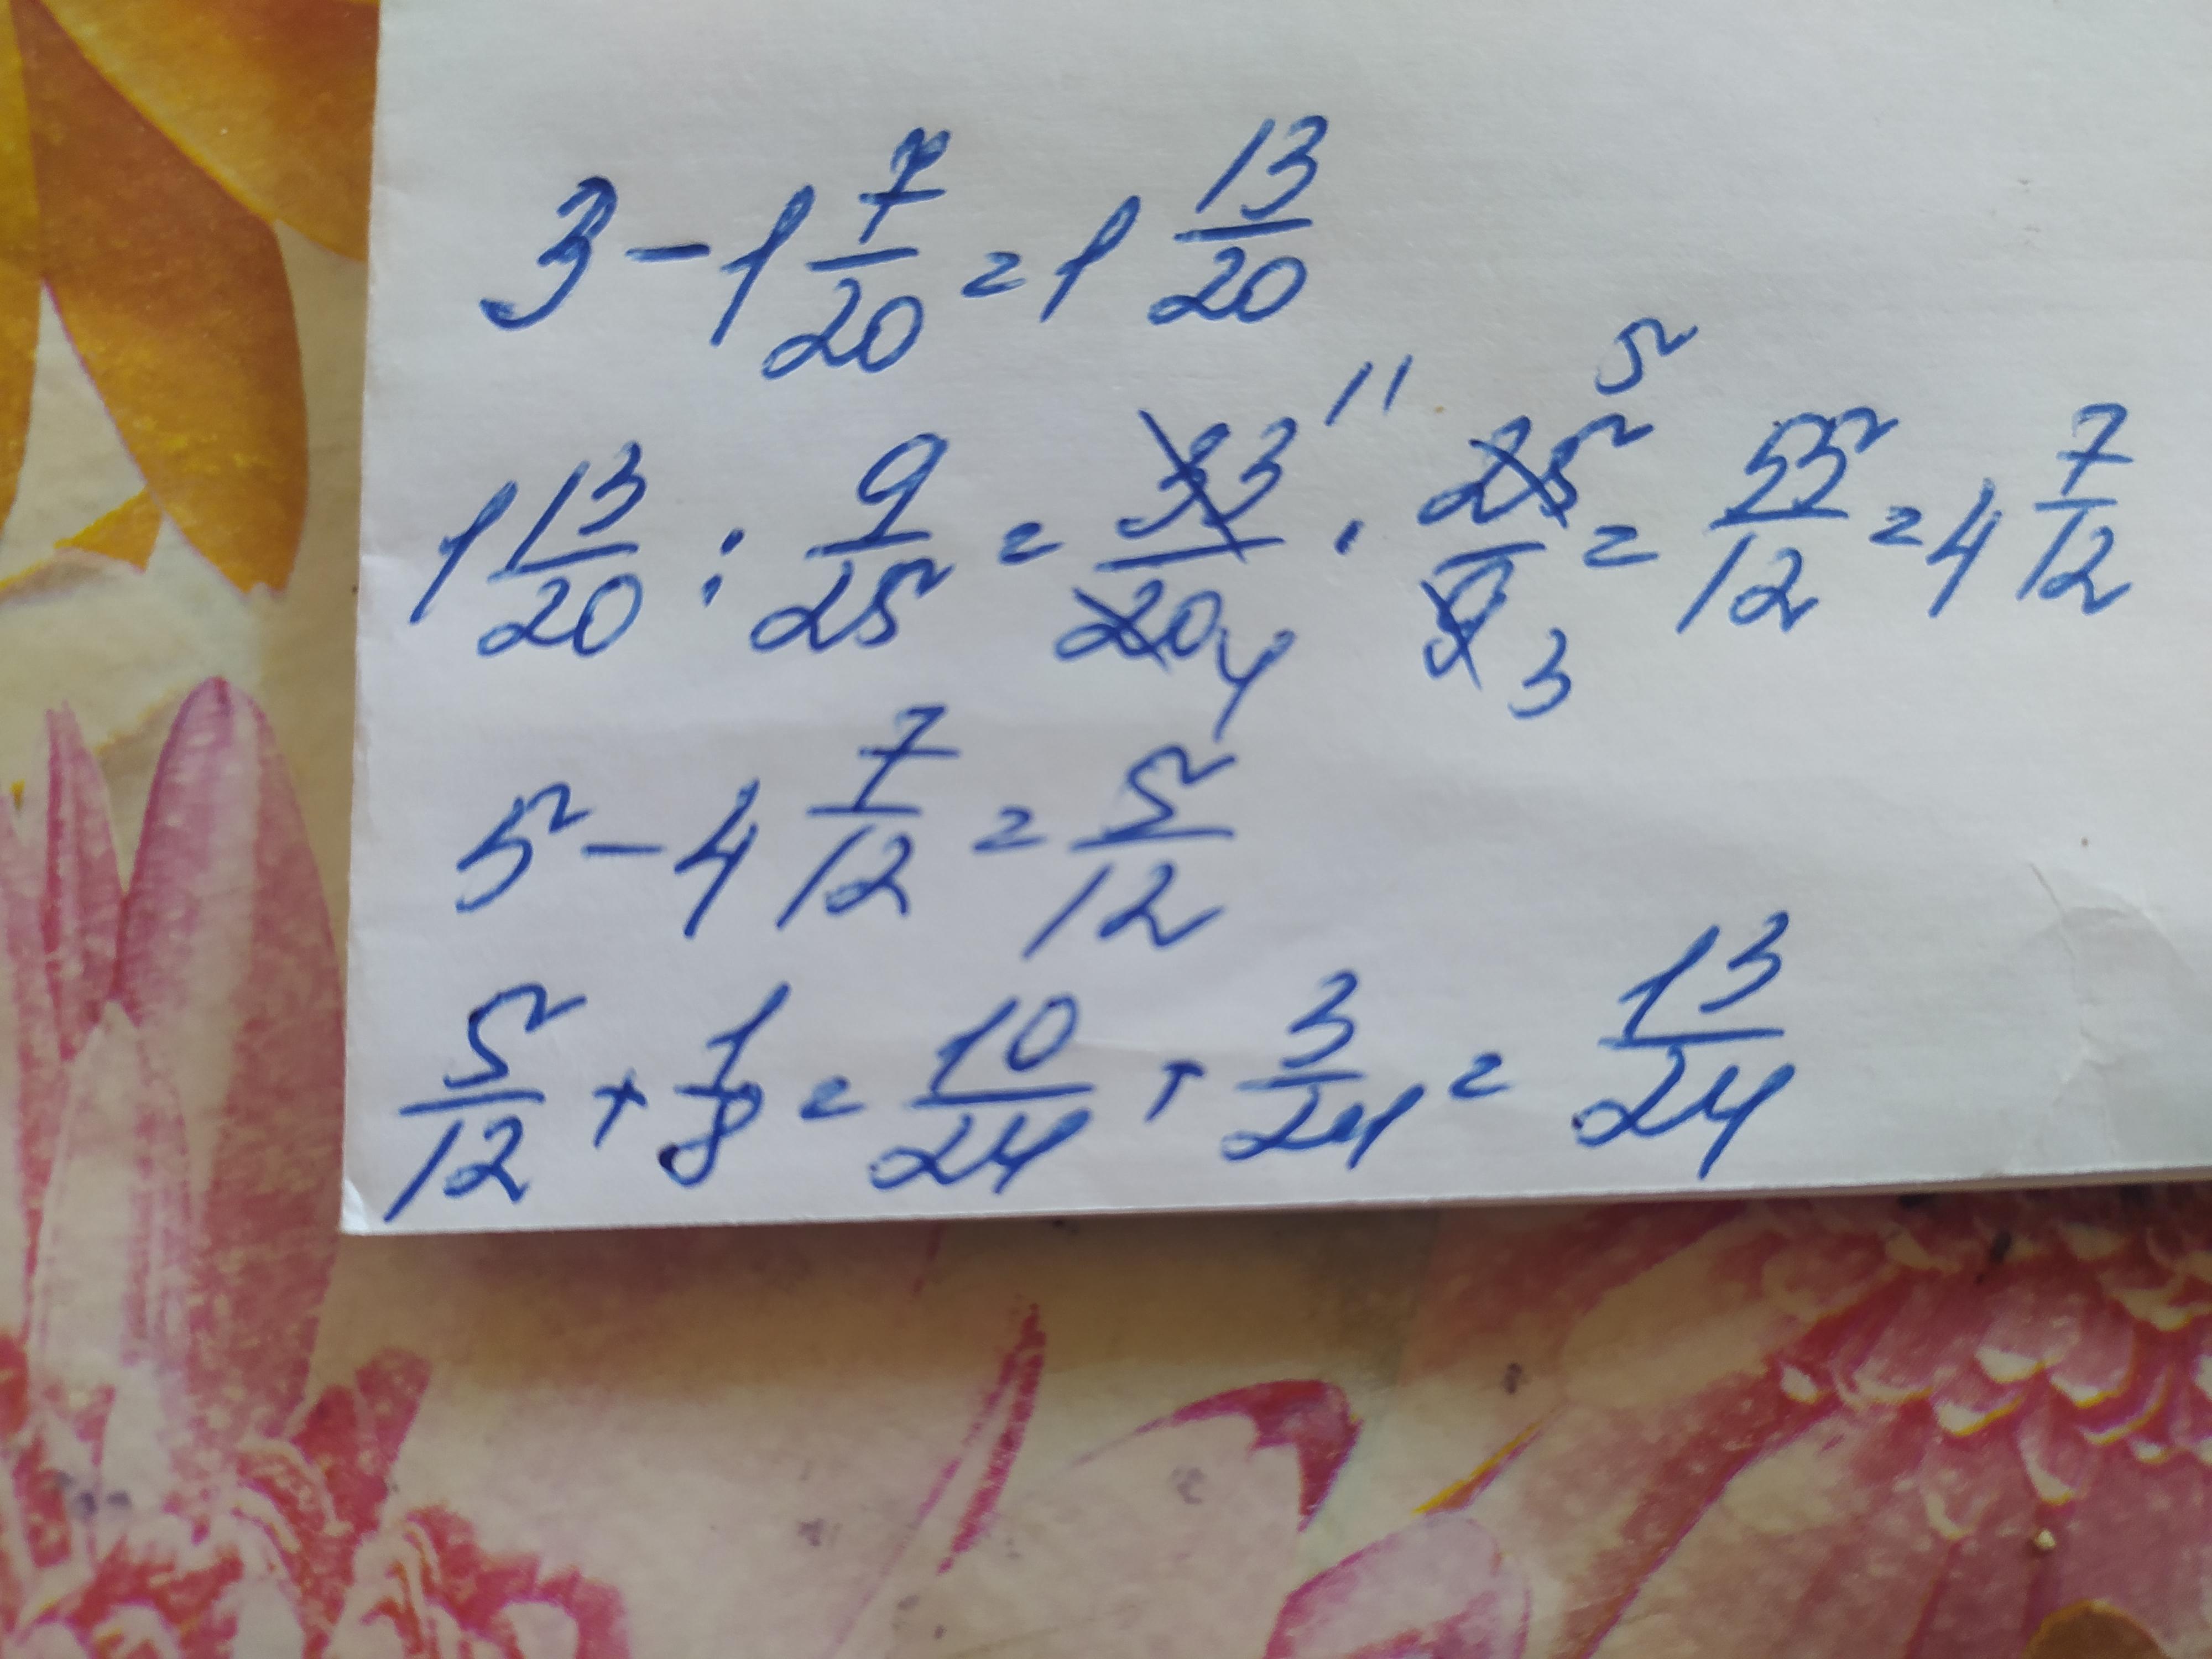 3 - 1 7/20 = 1 13/20
1 13/20 : 9/25 = 33/20 11 4 · 25/9 5 3 = 55/12 = 4 7/12
5 - 4 7/12 = 5/12
5/12 + 1/8 = 10/24 + 3/24 = 13/24